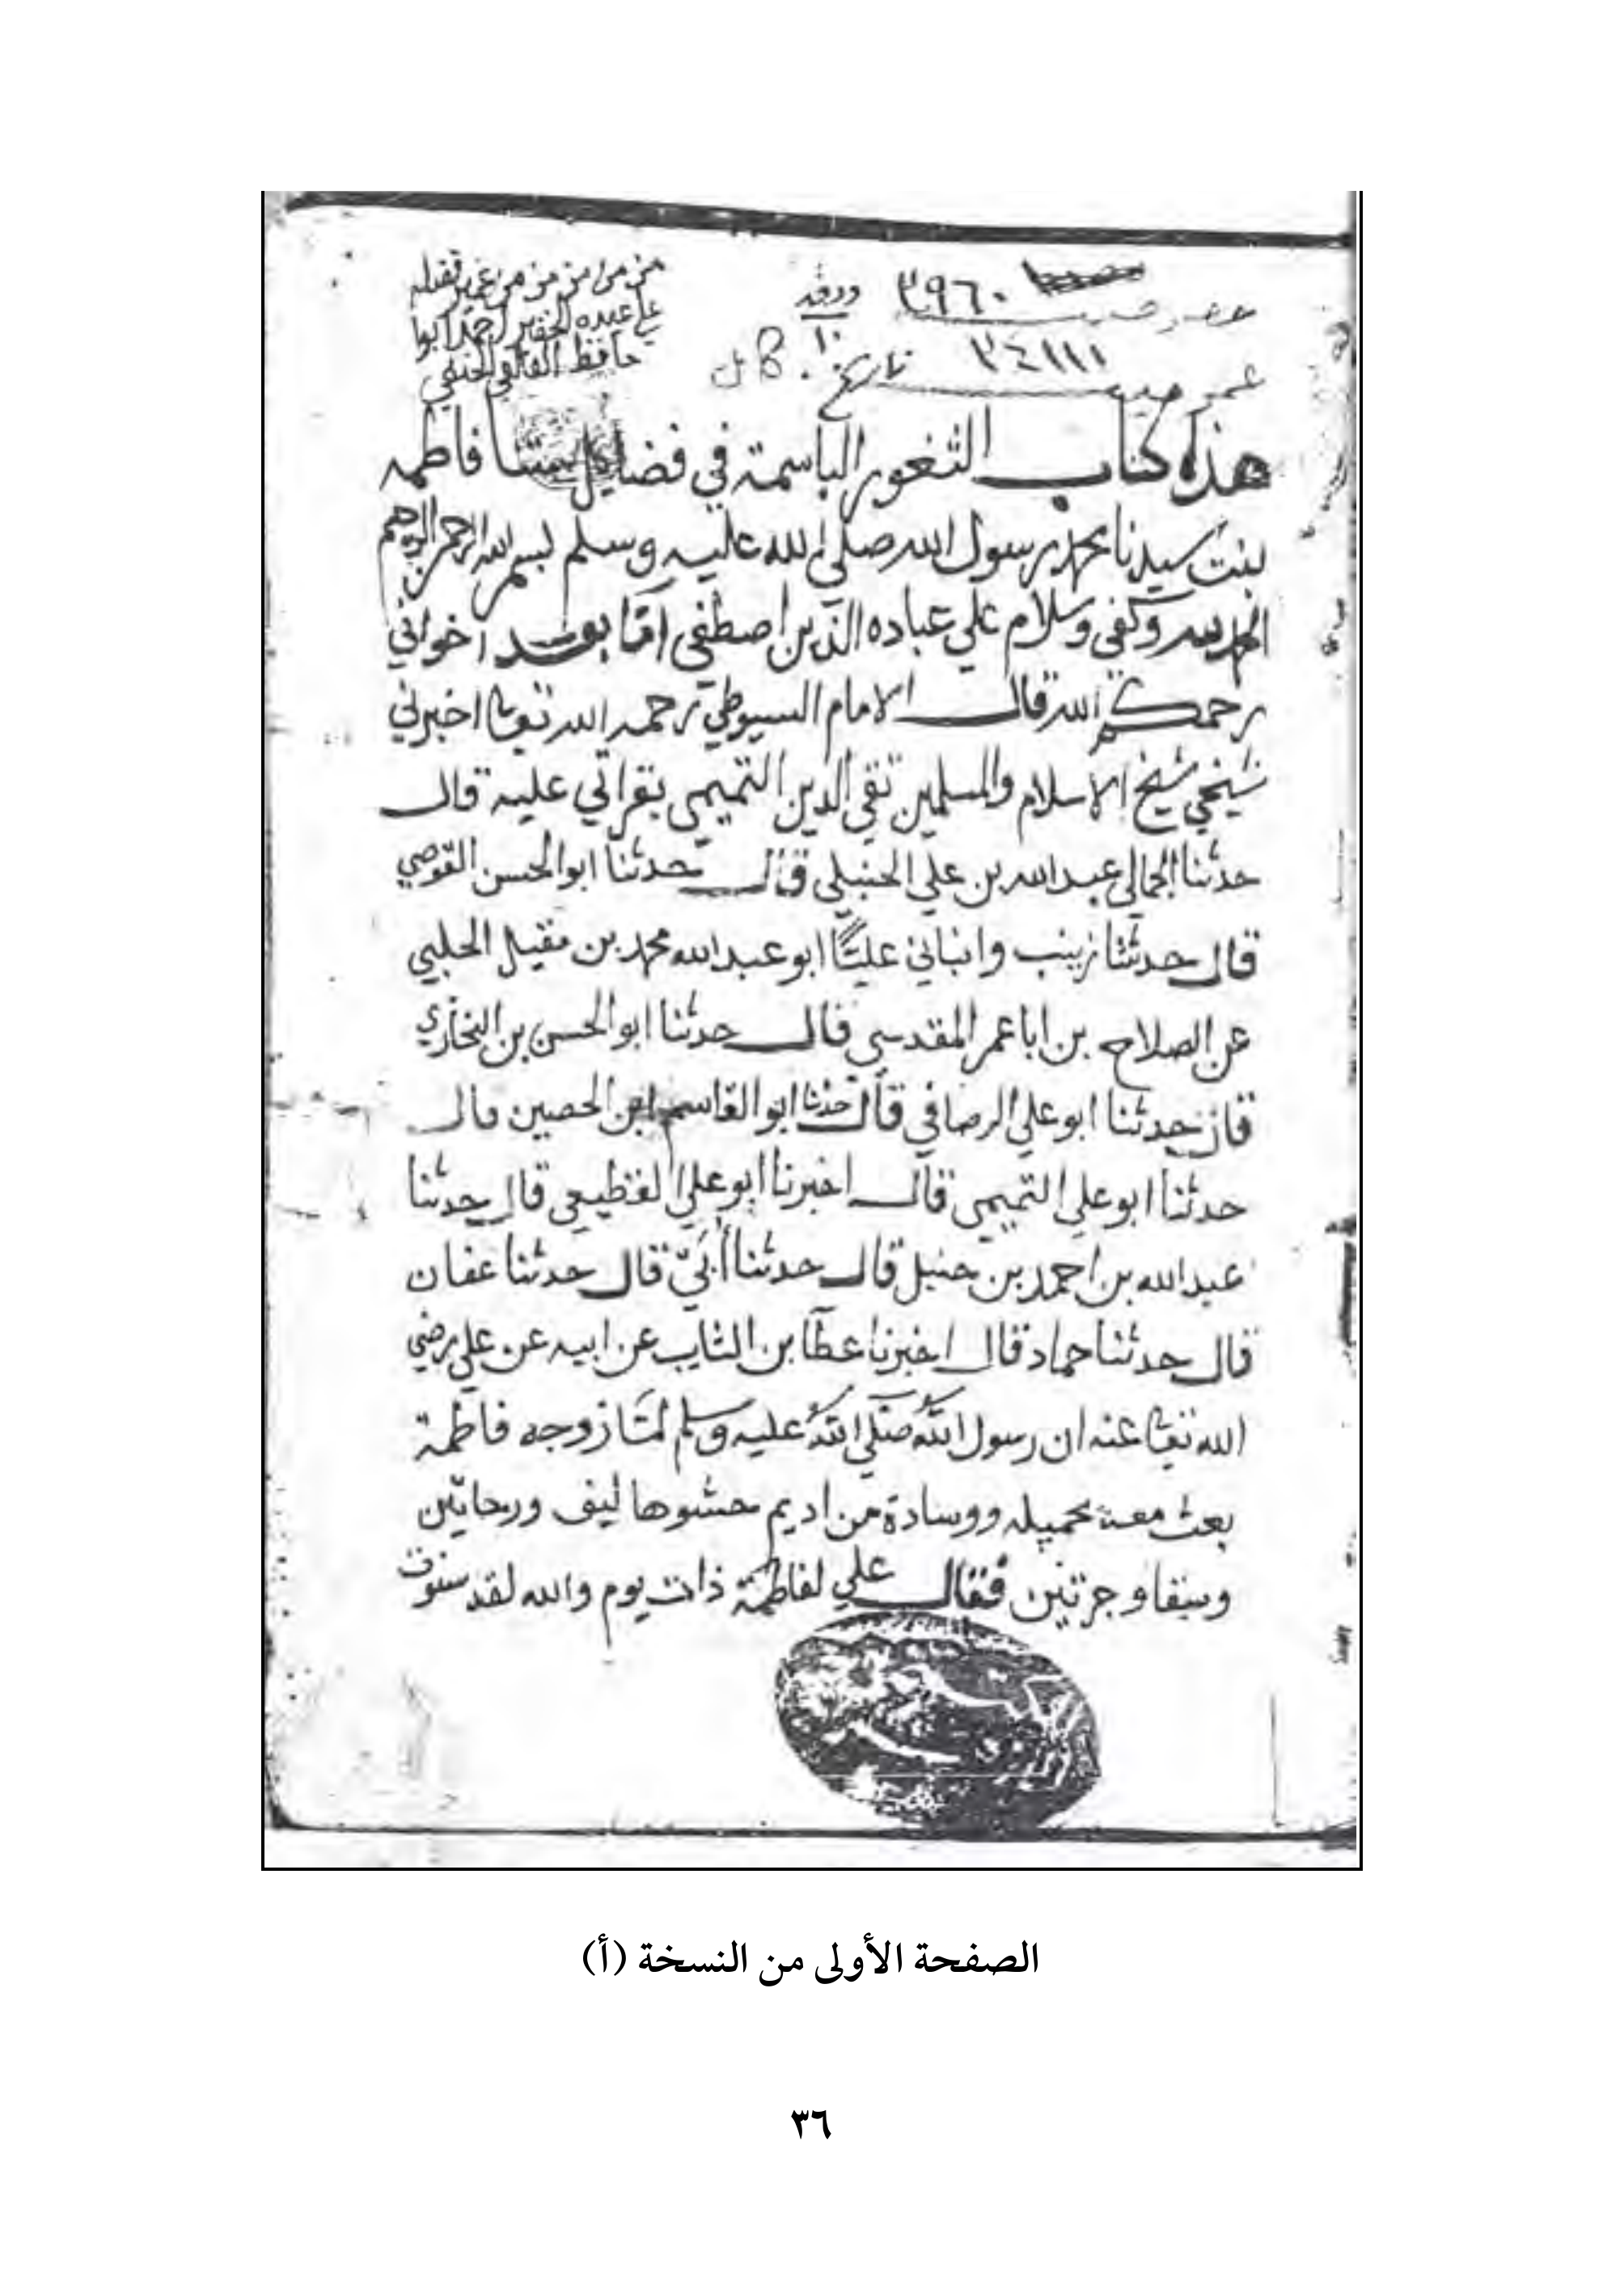 خصوصية ٣٩٦٠ ورقه
١٠
عمومية ٣٤١١١ تاريخ
من من غير تقلد
علي عبده الفقير احمد ابوا
حافظ الحنفي
هذا كتاب الثغور الباسمة في فضايل ستنا فاطمه
بنت سيدنا محمد رسول الله صلي الله عليه وسلم بسم الله الرحمن الرحيم
الحمد لله وكفى وسلام علي عباده الذين اصطفى امّا بعد اخواني
رحمكم الله قال الامام السيوطي رحمه الله تعالي اخبرني
شيخي شيخ الاسلام والمسلمين تقي الدين التميمي بقراتي عليه قال
حدثنا الجمالي عبد الله بن علي الحنبلي قال حدثنا ابو الحسن القوصي
قال حدثتنا زينب وانباني عليًّا ابو عبد الله محمد بن مقيل الحلبي
عن الصلاح بن ابا عمر المقدسي قال حدثنا ابو الحسن بن البخاري
قال حدثنا ابو علي الرصافي قال حدثنا ابو القاسم ابن الحصين قال
حدثنا ابو علي التميمي قال اخبرنا ابو علي القطيعي قال حدثنا
عبد الله بن احمد بن حنبل قال حدثنا أبَيّ قال حدثنا عفان
قال حدثنا حماد قال اخبرنا عطآ بن السايب عن ابيه عن علي رضي
الله تعالي عنه ان رسول اللّه صلّي اللّه عليه وسلم لمّا زوجه فاطمة
بعث معه بخميله ووسادة من اديم حشوها ليف ورحايّين
وسقا وجرتين فقال علي لفاطمة ذات يوم والله لقد سنوت
الصفحة الأولى من النسخة (أ)
٣٦